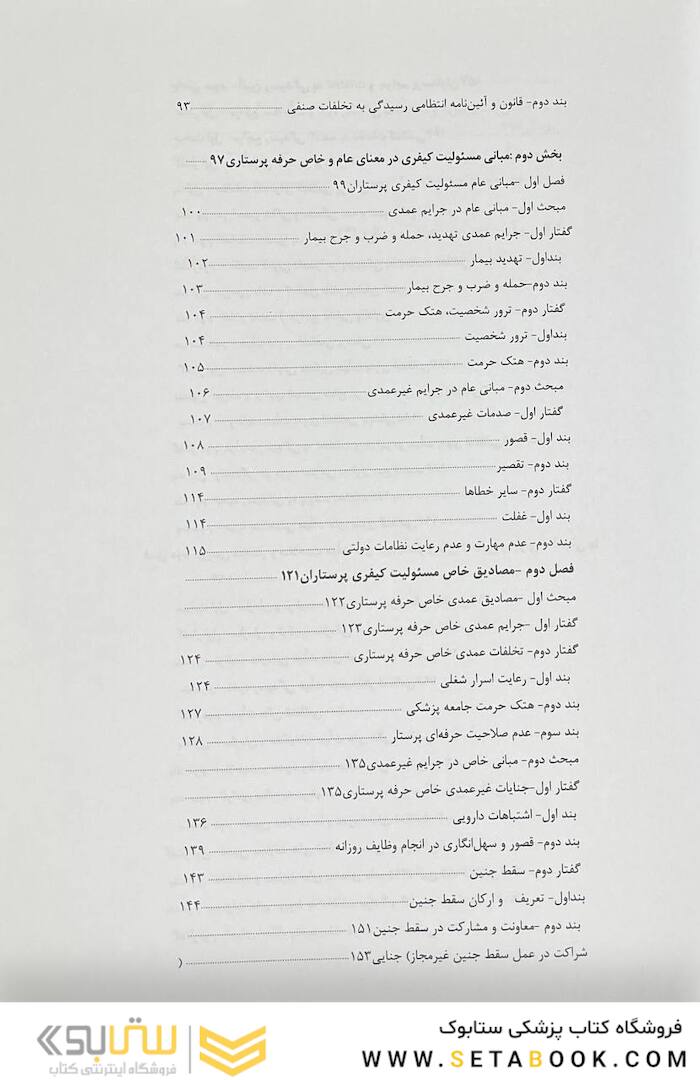 بند دوم- قانون و آئین‌نامه انتظامی رسیدگی به تخلفات صنفی ........ ۹۳
بخش دوم :مبانی مسئولیت کیفری در معنای عام و خاص حرفه پرستاری۹۷ ........
فصل اول -مبانی عام مسئولیت کیفری پرستاران۹۹ ........
مبحث اول- مبانی عام در جرایم عمدی ........ ۱۰۰
گفتار اول- جرایم عمدی تهدید، حمله و ضرب و جرح بیمار ........ ۱۰۱
بنداول- تهدید بیمار ........ ۱۰۲
بند دوم-حمله و ضرب و جرح بیمار ........ ۱۰۳
گفتار دوم- ترور شخصیت، هتک حرمت ........ ۱۰۴
بنداول- ترور شخصیت ........ ۱۰۴
بند دوم- هتک حرمت ........ ۱۰۵
مبحث دوم- مبانی عام در جرایم غیرعمدی ........ ۱۰۶
گفتار اول- صدمات غیرعمدی ........ ۱۰۷
بند اول- قصور ........ ۱۰۸
بند دوم- تقصیر ........ ۱۰۹
گفتار دوم- سایر خطاها ........ ۱۱۴
بند اول- غفلت ........ ۱۱۴
بند دوم- عدم مهارت و عدم رعایت نظامات دولتی ........ ۱۱۵
فصل دوم -مصادیق خاص مسئولیت کیفری پرستاران۱۲۱ ........
مبحث اول -مصادیق عمدی خاص حرفه پرستاری۱۲۲ ........
گفتار اول -جرایم عمدی خاص حرفه پرستاری۱۲۳ ........
گفتار دوم- تخلفات عمدی خاص حرفه پرستاری ........ ۱۲۴
بند اول- رعایت اسرار شغلی ........ ۱۲۴
بند دوم- هتک حرمت جامعه پزشکی ........ ۱۲۷
بند سوم- عدم صلاحیت حرفه‌ای پرستار ........ ۱۲۸
مبحث دوم- مبانی خاص در جرایم غیرعمدی۱۳۵ ........
گفتار اول-جنایات غیرعمدی خاص حرفه پرستاری۱۳۵ ........
بند اول- اشتباهات دارویی ........ ۱۳۶
بند دوم- قصور و سهل‌انگاری در انجام وظایف روزانه ........ ۱۳۹
گفتار دوم- سقط جنین ........ ۱۴۳
بنداول- تعریف و ارکان سقط جنین ........ ۱۴۴
بند دوم -معاونت و مشارکت در سقط جنین۱۵۱ ........
شراکت در عمل سقط جنین غیرمجاز) جنایی۱۵۳ ........ (
فروشگاه کتاب پزشکی ستابوک
WWW.SETABOOK.COM
ستابوک
فروشگاه اینترنتی کتاب